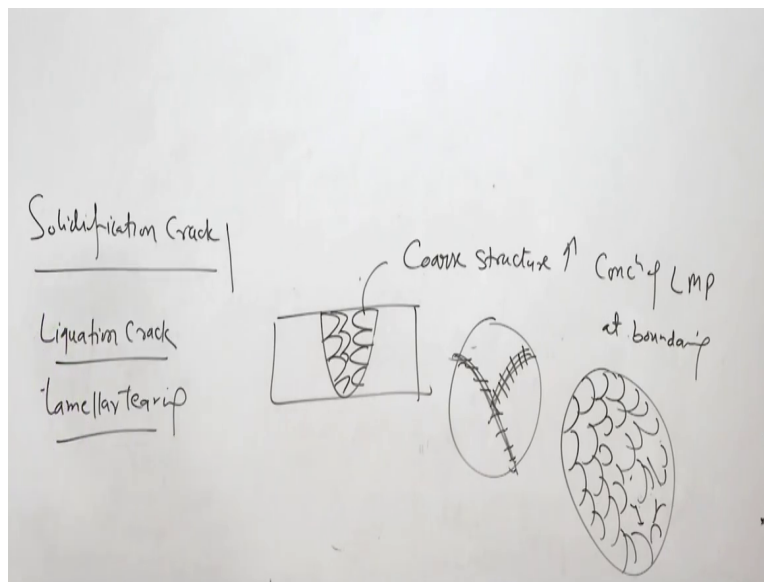 Solidification Crack
Liquation Crack
Lamellar tearing
Coarse structure ↑ Concⁿ of LMP
at boundary